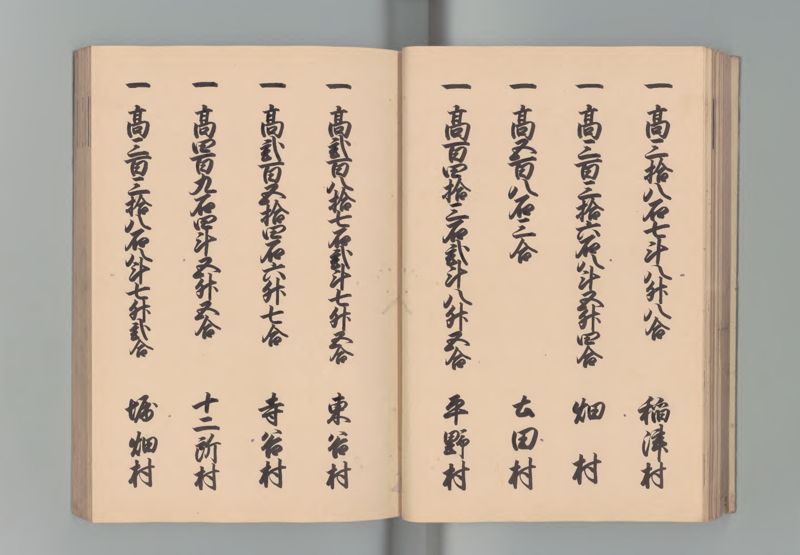 一 高三拾八石七斗八升八合 稲澤村
一 高三百三拾六石八斗五升四合 畑村
一 高五百八石三合 太田村
一 高百四拾三石弐斗八升五合 平野村
一 高弐百八拾七石弐斗七升五合 東谷村
一 高弐百五拾四石六升七合 寺谷村
一 高四百九石四斗五升五合 十二所村
一 高三百三拾八石八斗七升弐合 堀畑村